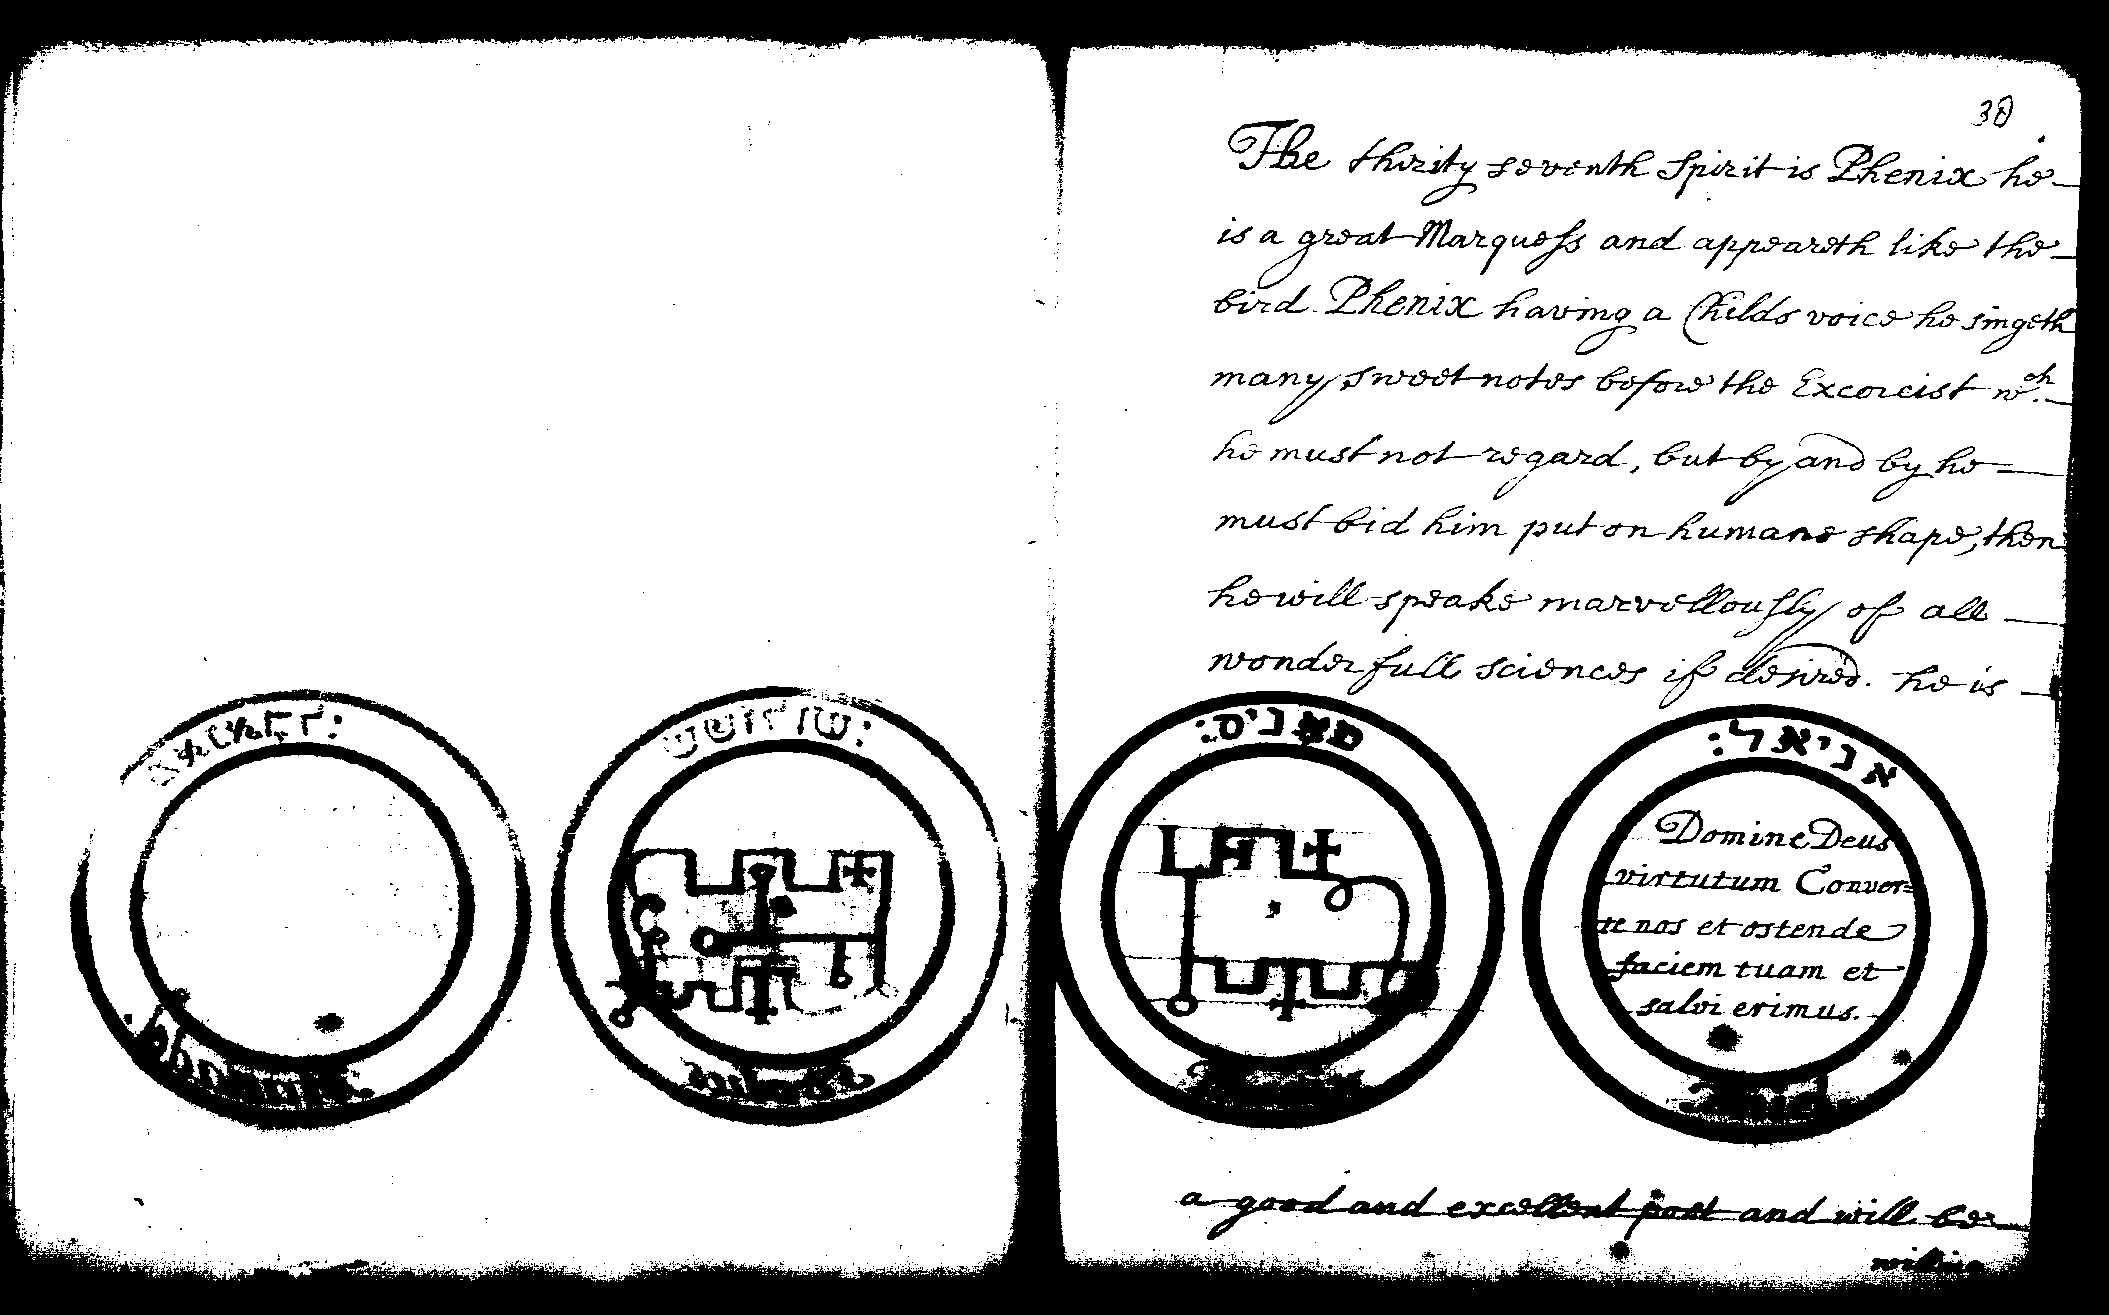 38
The thirity seventh Spirit is Phenix he
is a great Marquess and appeareth like the
bird Phenix having a Childs voice he singeth
many sweet notes before the Excorcist wch.
he must not regard, but by and by he
must bid him put on humane shape, then
he will speake marvellously of all
wonderfull sciences if desired. he is
שו
מאניס:
אניאל:
Domine Deus
virtutum Conver=
te nos et ostende
faciem tuam et
salvi erimus.
a good and excellent poet and will be